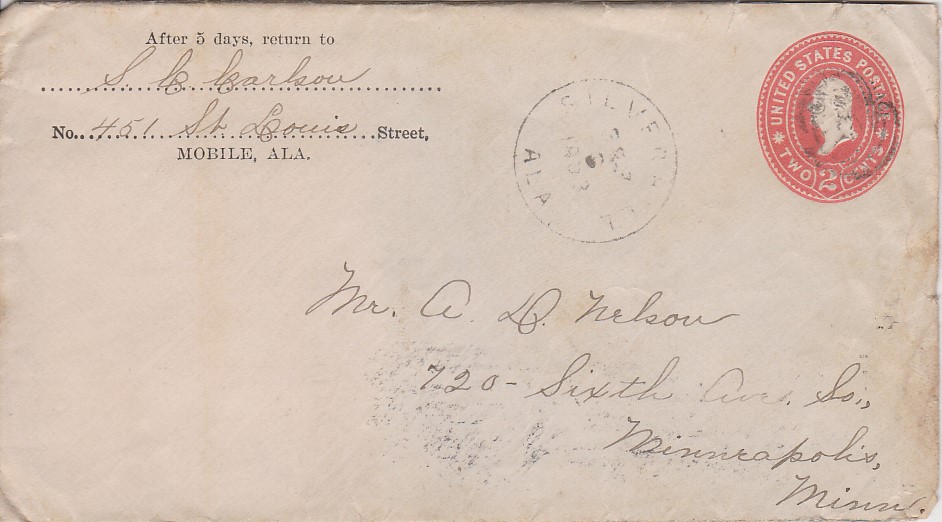 After 5 days, return to
S C Carlson
No. 451 St Louis Street,
MOBILE, ALA.
SILVERHILL
ALA
UNITED STATES POSTAGE
TWO 2 CENTS
Mr. A. D. Nelson
720 - Sixth Ave. So.,
Minneapolis,
Minn.